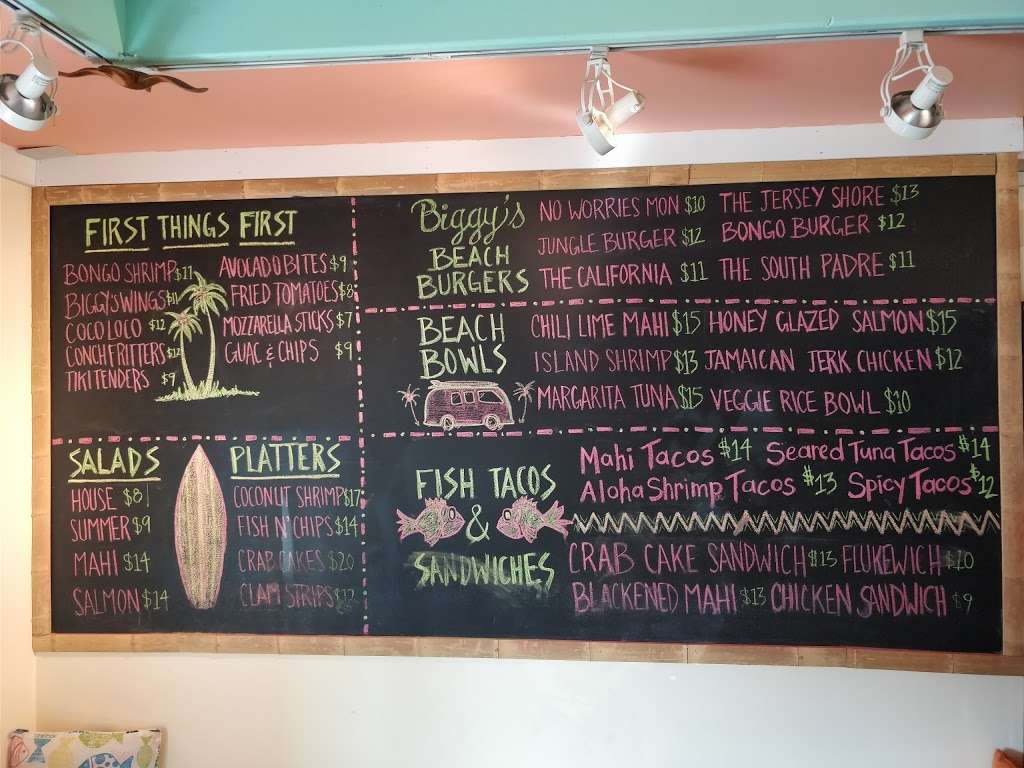 FIRST THINGS FIRST
BONGO SHRIMP $11
BIGGY'S WINGS $11
COCO LOCO $12
CONCH FRITTERS $12
TIKI TENDERS $9
AVOCADO BITES $9
FRIED TOMATOES $8
MOZZARELLA STICKS $7
GUAC & CHIPS $9
SALADS
HOUSE $8
SUMMER $9
MAHI $14
SALMON $14
PLATTERS
COCONUT SHRIMP $17
FISH N' CHIPS $14
CRAB CAKES $20
CLAM STRYPS $12
Biggy's
BEACH
BURGERS
NO WORRIES MON $10 THE JERSEY SHORE $13
JUNGLE BURGER $12 BONGO BURGER $12
THE CALIFORNIA $11 THE SOUTH PADRE $11
BEACH
BOWLS
CHILI LIME MAHI $15 HONEY GLAZED SALMON $15
ISLAND SHRIMP $13 JAMAICAN JERK CHICKEN $12
MARGARITA TUNA $15 VEGGIE RICE BOWL $10
FISH TACOS
&
SANDWICHES
Mahi Tacos $14 Seared Tuna Tacos $14
Aloha Shrimp Tacos $13 Spicy Tacos $12
CRAB CAKE SANDWICH $13 FLUKEWICH $10
BLACKENED MAHI $13 CHICKEN SANDWICH $9